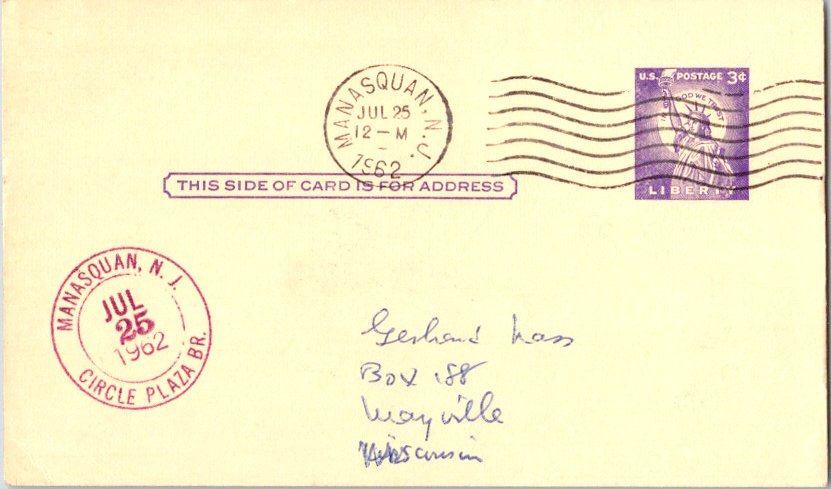 MANASQUAN, N.J.
JUL 25
12-M
1962
U.S. POSTAGE 3¢
IN GOD WE TRUST
LIBERTY
THIS SIDE OF CARD IS FOR ADDRESS
MANASQUAN, N. J.
JUL
25
1962
CIRCLE PLAZA BR.
Gerhard
Box 188
Mayville
Wisconsin